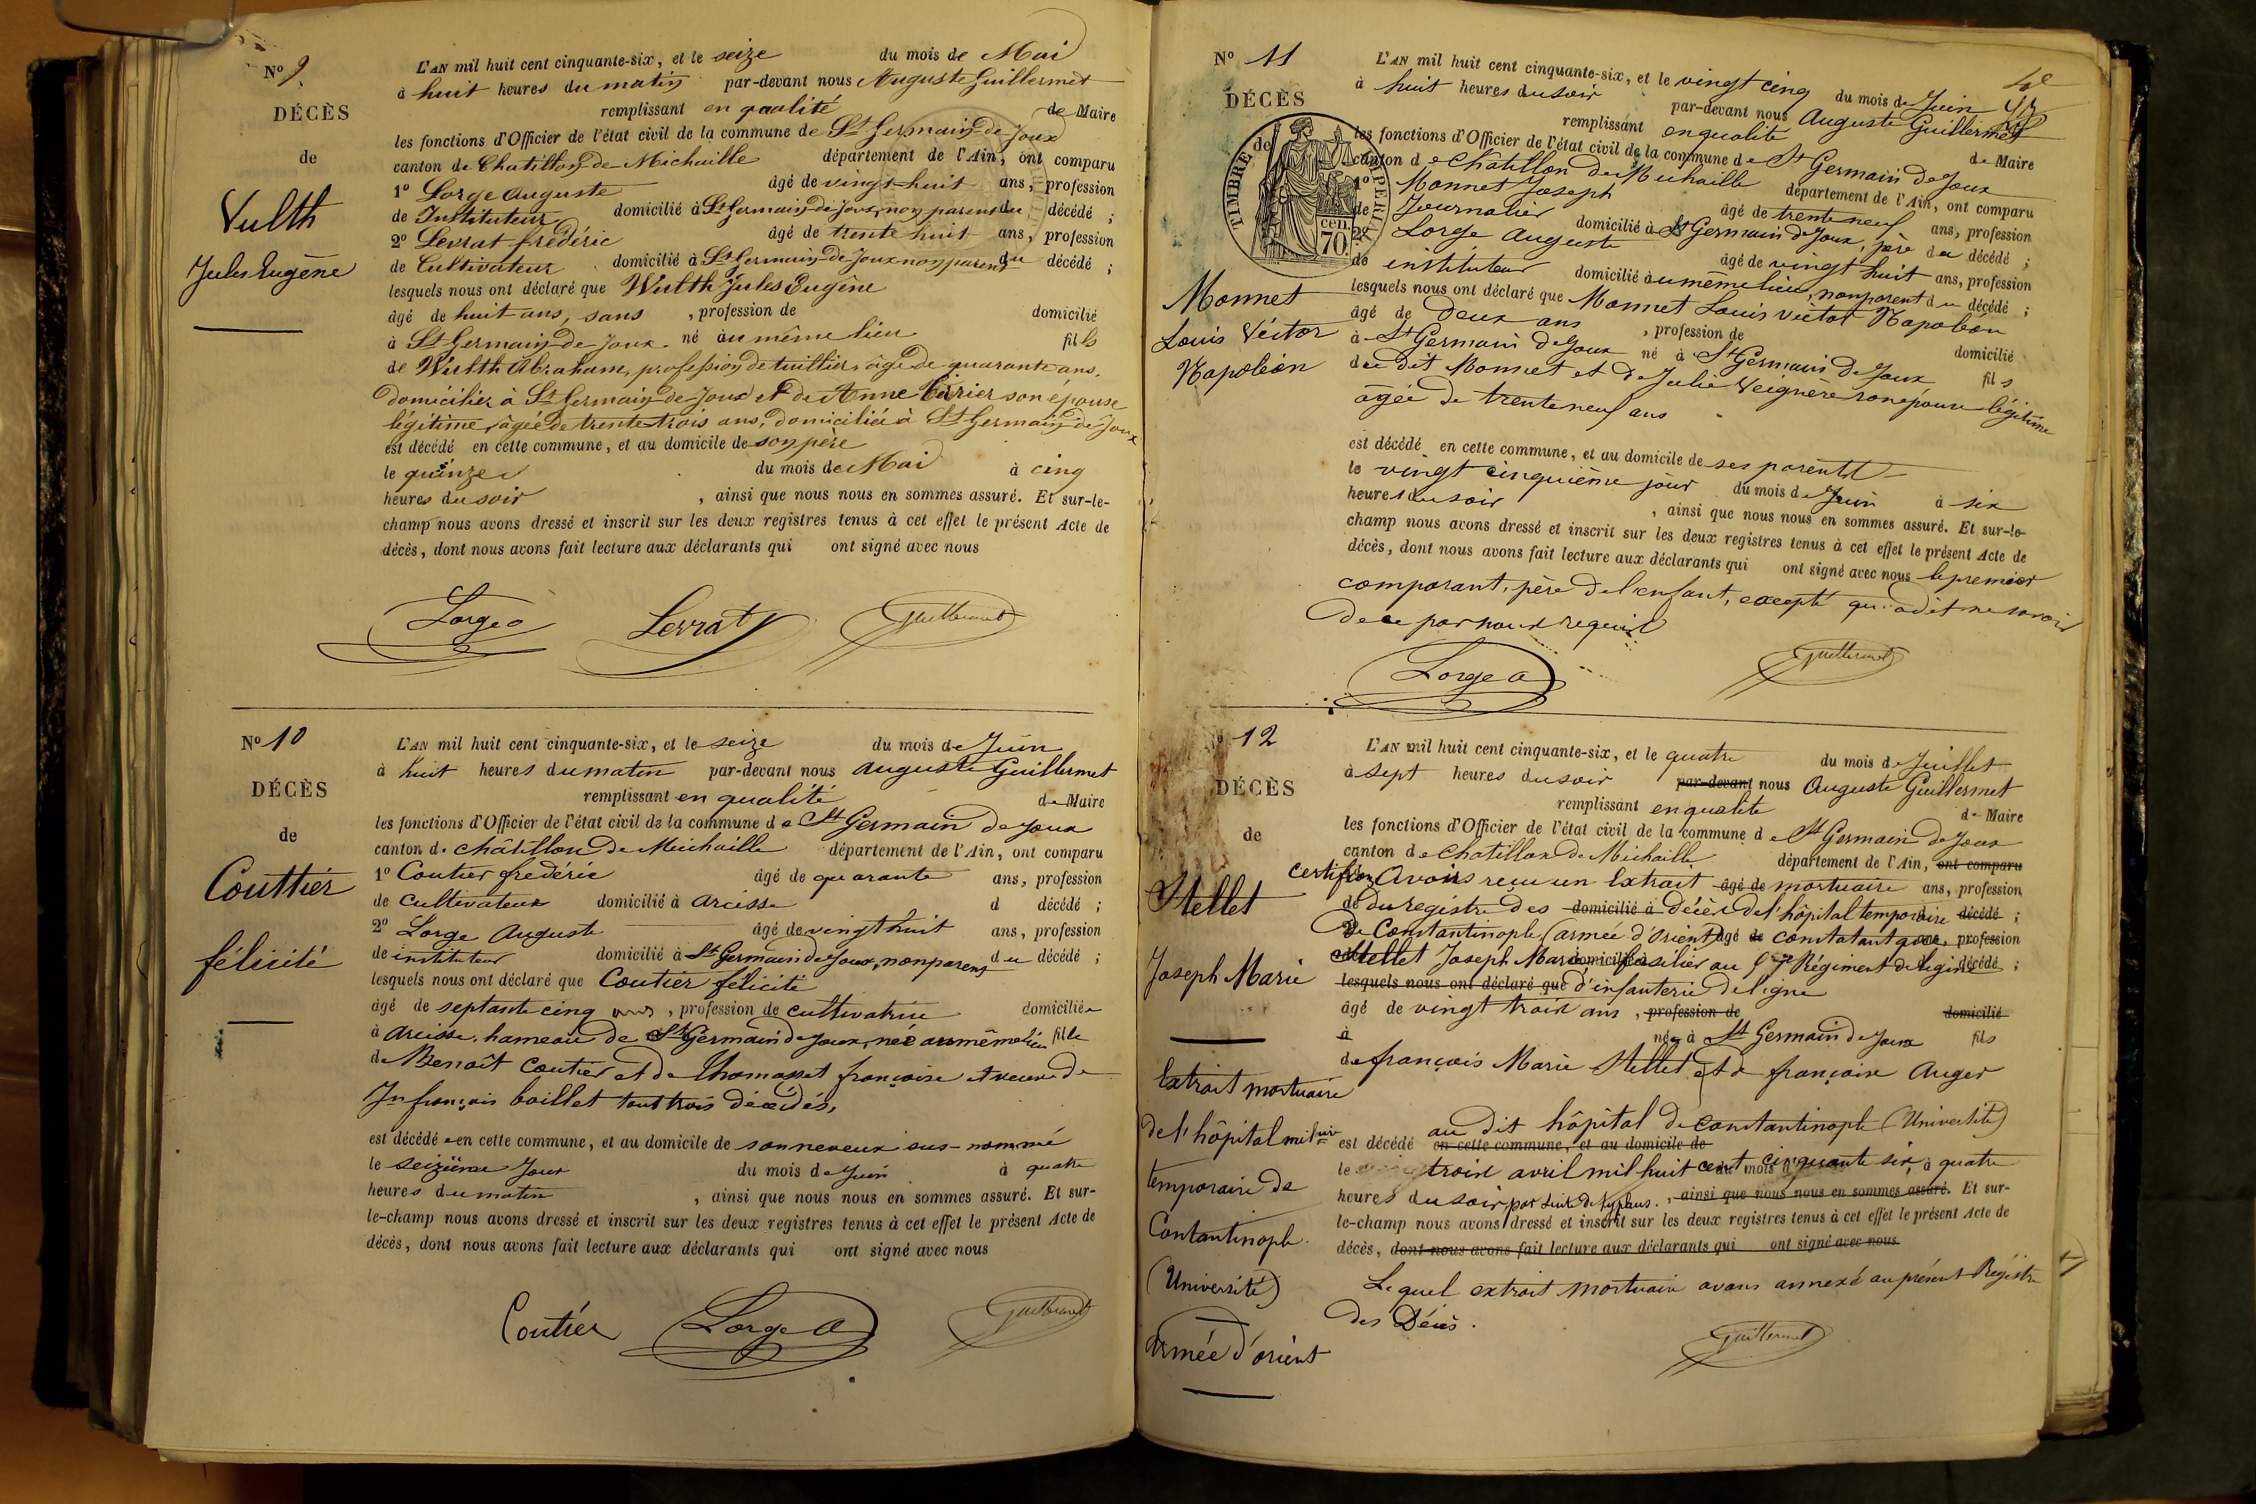 N° 9
DÉCÈS
de
Vulth
Jules Eugène
L'AN mil huit cent cinquante-six, et le seize du mois de Mai
à huit heures du matin par-devant nous Auguste Guillermet
remplissant en qualité de Maire
les fonctions d'Officier de l'état civil de la commune de St Germain de Joux
canton de Chatillon de Michaille département de l'Ain, ont comparu
1° Lorge Auguste âgé de vingt-huit ans, profession
de Instituteur domicilié à St Germain de Joux, non parent du décédé ;
2° Levrat frédéric âgé de trente huit ans, profession
de Cultivateur domicilié à St Germain de Joux non parent du décédé ;
lesquels nous ont déclaré que Wulth Jules Eugène
âgé de huit ans, sans , profession de domicilié
à St Germain de Joux né au même lieu fils
de Wulth Abraham, profession de tuillier, âgé de quarante ans,
domicilier à St Germain de Joux et de Anne son épouse
légitime, âgée de trente trois ans, domiciliée à St Germain de Joux
est décédé en cette commune, et au domicile de son père
le quinze du mois de Mai à cinq
heures du soir , ainsi que nous nous en sommes assuré. Et sur-le-
champ nous avons dressé et inscrit sur les deux registres tenus à cet effet le présent Acte de
décès, dont nous avons fait lecture aux déclarants qui ont signé avec nous
Lorge a Levrat f Guillermet
N° 10
DÉCÈS
de
Couttier
félicité
L'AN mil huit cent cinquante-six, et le seize du mois de Juin
à huit heures du matin par-devant nous Auguste Guillermet
remplissant en qualité de Maire
les fonctions d'Officier de l'état civil de la commune de St Germain de Joux
canton de Châtillon de Michaille département de l'Ain, ont comparu
1° Coutier frédéric âgé de quarante ans, profession
de Cultivateur domicilié à arcisse d décédé ;
2° Lorge Auguste âgé de vingt huit ans, profession
de instituteur domicilié à St Germain de Joux, non parent du décédé ;
lesquels nous ont déclaré que Coutier félicité
âgé de septante cinq ans, profession de cultivatrice domiciliée
à arcisse, hameau de St Germain de Joux, née au même lieu fille
de Benoît Coutier et de Thomasset françoise et veuve de
Jn françois boillet tout trois décédés,
est décédée en cette commune, et au domicile de son neveux sus-nommé
le seizième Jour du mois de Juin à quatre
heures du matin , ainsi que nous nous en sommes assuré. Et sur-
le-champ nous avons dressé et inscrit sur les deux registres tenus à cet effet le présent Acte de
décès, dont nous avons fait lecture aux déclarants qui ont signé avec nous
Coutier Lorge A Guillermet
N° 11
DÉCÈS
de
TIMBRE IMPERIAL
cen.
70.
Monnet
Louis Victor
Napoléon
L'AN mil huit cent cinquante-six, et le vingt cinq du mois de Juin
à huit heures du soir par-devant nous Auguste Guillermet
remplissant en qualité de Maire
les fonctions d'Officier de l'état civil de la commune de St Germain de Joux
canton de Chatillon de Michaille département de l'Ain, ont comparu
1° Monnet Joseph âgé de trente neuf ans, profession
de Journalier domicilié à St Germain de Joux, père du décédé ;
2° Lorge Auguste âgé de vingt huit ans, profession
de instituteur domicilié au même lieu, non parent du décédé ;
lesquels nous ont déclaré que Monnet Louis victor Napoléon
âgé de Deux ans , profession de domicilié
à St Germain de Joux né à St Germain de Joux fils
du dit Monnet et de Julie Veignère son épouse légitime
âgée de trente neuf ans
est décédé en cette commune, et au domicile de ses parents
le vingt cinquième jour du mois de Juin à six
heures du soir , ainsi que nous nous en sommes assuré. Et sur-le-
champ nous avons dressé et inscrit sur les deux registres tenus à cet effet le présent Acte de
décès, dont nous avons fait lecture aux déclarants qui ont signé avec nous le premier
comparant, père de l'enfant, excepté qui a dit ne savoir
de ce par nous requis
Lorge a Guillermet
N° 12
DÉCÈS
de
Stellet
Joseph Marie
Extrait mortuaire
de l'hôpital milre
temporaire de
Contantinople
(Université)
armée d'orient
L'AN mil huit cent cinquante-six, et le quatre du mois de Juillet
à sept heures du soir par-devant nous Auguste Guillermet
remplissant en qualité de Maire
les fonctions d'Officier de l'état civil de la commune de St Germain de Joux
canton de Chatillon de Michaille département de l'Ain, ont comparu
certifions Avoirs reçu un Extrait âgé de mortuaire ans, profession
de du registre des domicilié à décès de l'hôpital temporaire décédé ;
De Constantinople (armée d'orient) âgé de constatant que ans, profession
Stellet Joseph Marie domicilié à fusilier au 57 Régiment de ligne décédé ;
lesquels nous ont déclaré que d'infanterie de ligne
âgé de vingt trois ans , profession de domicilié
à né à St Germain de Joux fils
de françois Marie Stellet et de françoise Auger
au dit hôpital de constantinople (Université)
est décédé en cette commune, et au domicile de
le trois avril mil huit cent du mois d cinquante six, à quatre
heures du soir par suite de typhus. , ainsi que nous nous en sommes assuré. Et sur-
le-champ nous avons dressé et inscrit sur les deux registres tenus à cet effet le présent Acte de
décès, dont nous avons fait lecture aux déclarants qui ont signé avec nous
Lequel extrait mortuaire avons annexé au présent Régistre
des Décès.
Guillermet